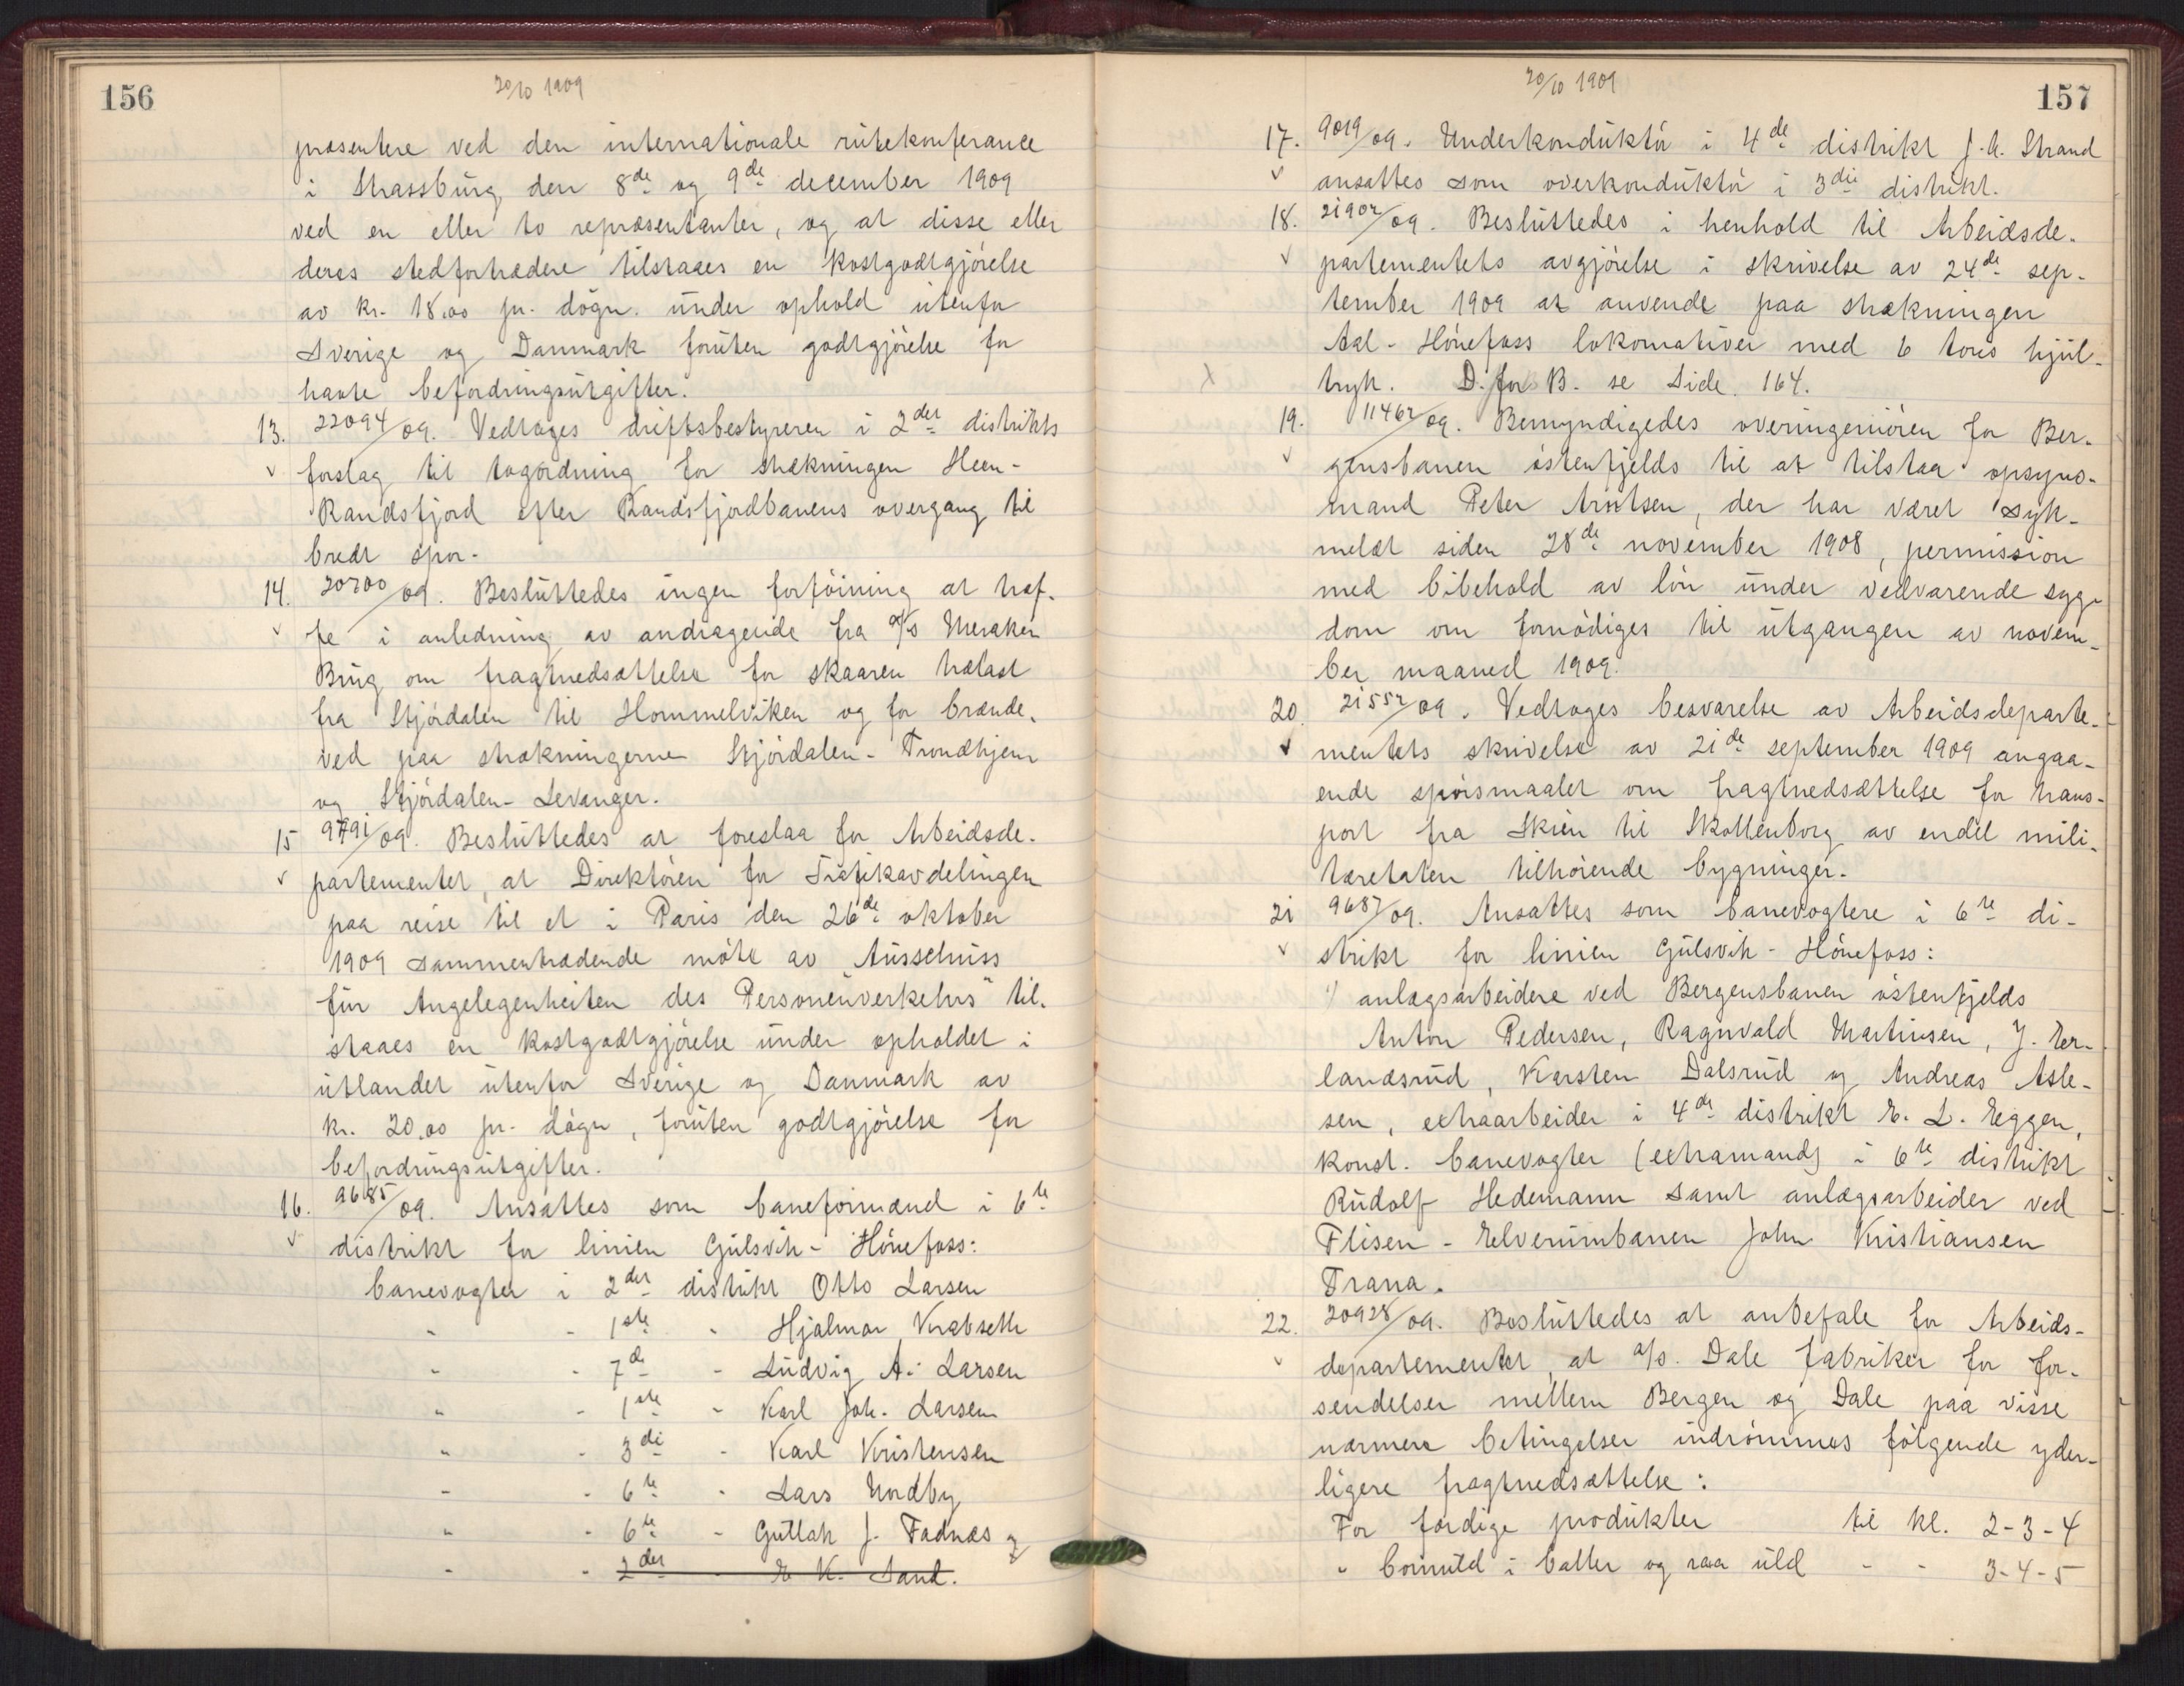 156
20/10 1909
præsentere ved den internationale rutekonferance
i Strassburg den 8de og 9de december 1909
ved en eller to repræsentanter, og at disse eller
deres stedfortrædere tilstaaes en kostgodtgjörelse
av kr. 18.00 pr. dögn under ophold utenfor
Sverige og Danmark foruten godtgjörelse for
havte befordringsutgifter.
13. 22094/09. Vedtoges driftsbestyreren i 2det distrikts
v forslag til togordning for strækningen Heen-
Randsfjord efter Randsfjordbanens overgang til
bredt spor.
14. 20700/09. Besluttedes ingen forföining at træf-
v fe i anledning av andragende fra A/S Meraker
Brug om fragtnedsættelse for skaaren trælast
fra Stjördalen til Hommelviken og for brænde-
ved paa strækningerne Stjördalen - Trondhjem
og Stjördalen - Levanger.
15 9791/09. Besluttedes at foreslaa for Arbeidsde-
v partementet, at Direktören for Trafikavdelingen
paa reise til et i Paris den 26de oktober
1909 sammentrædende möte av "Ausschuss
für Angelegenheiten des Personenverkehrs" til-
staaes en kostgodtgjörelse under opholdet i
utlandet utenfor Sverige og Danmark av
kr. 20.00 pr. dögn, foruten godtgjörelse for
befordringsutgifter.
16. 9685/09. Ansattes som baneformænd i 6te
v distrikt for linien Gulsvik - Hönefoss:
banevogter i 2det distrikt Otto Larsen
" - 1ste - Hjalmar Krabseth
" - 7de - Ludvig A. Larsen
" - 1ste - Karl Joh. Larsen
" - 3die - Karl Kristensen
" - 6te - Lars Nordby
" - 6te - Gutlak J. Fadnæs og
" - 2det - E K. Sand.
20/10 1909
157
17. 9019/09. Underkonduktör i 4de distrikt J. A. Strand
v ansattes som overkonduktör i 3die distrikt.
18. 21902/09. Besluttedes i henhold til Arbeidsde-
v partementets avgjörelse i skrivelse av 24de sep-
tember 1909 at anvende paa strækningen
Aal - Hönefoss lokomotiver med 6 tons hjul-
x tryk. D. for B. se Side 164.
19. 11462/09. Bemyndigedes overingeniören for Ber-
v gensbanen östenfjelds til at tilstaa opsyns-
mand Peter Arntsen, der har været syk-
meldt siden 28de november 1908, permission
med bibehold av lön under vedvarende syg-
dom om fornödiges til utgangen av novem-
ber maaned 1909.
20. 21552/09. Vedtoges besvarelse av Arbeidsdeparte-
v mentets skrivelse av 21de september 1909 angaa-
ende spörsmaalet om fragtnedsættelse for trans-
port fra Skien til Skottenborg av endel mili-
tæretaten tilhörende bygninger.
21 9687/09. Ansattes som banevogtere i 6te di-
v strikt for linien Gulsvik - Hönefoss:
anlægsarbeidere ved Bergensbanen östenfjelds
Anton Pedersen, Ragnvald Martinsen, J. Er-
landsrud, Karsten Dalsrud og Andreas Asle-
sen, extraarbeider i 4de distrikt E. L. Eggen,
konst. banevogter (extramand) i 6te distrikt
Rudolf Hedemann samt anlægsarbeider ved
Flisen - Elverumbanen John Kristiansen
Trana.
22. 20928/09. Besluttedes at anbefale for Arbeids-
v departementet, at A/S. Dale fabriker for for-
sendelser mellem Bergen og Dale paa visse
nærmere betingelser indrömmes fölgende yder-
ligere fragtnedsættelse:
For færdige produkter til kl. 2-3-4
" bomuld i baller og raa uld - - 3-4-5